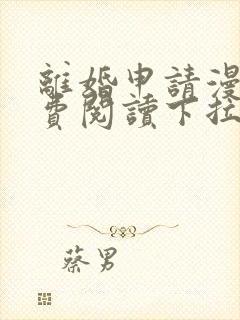 離婚申請漫
費閱讀下拉
蔡男